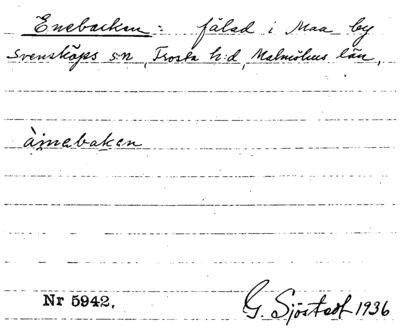 Enebacken: fälad i Maa by
Svensköps s:n, Frosta h:d, Malmöhus län,
àinebaken
Nr 5942.
G. Sjöstedt 1936